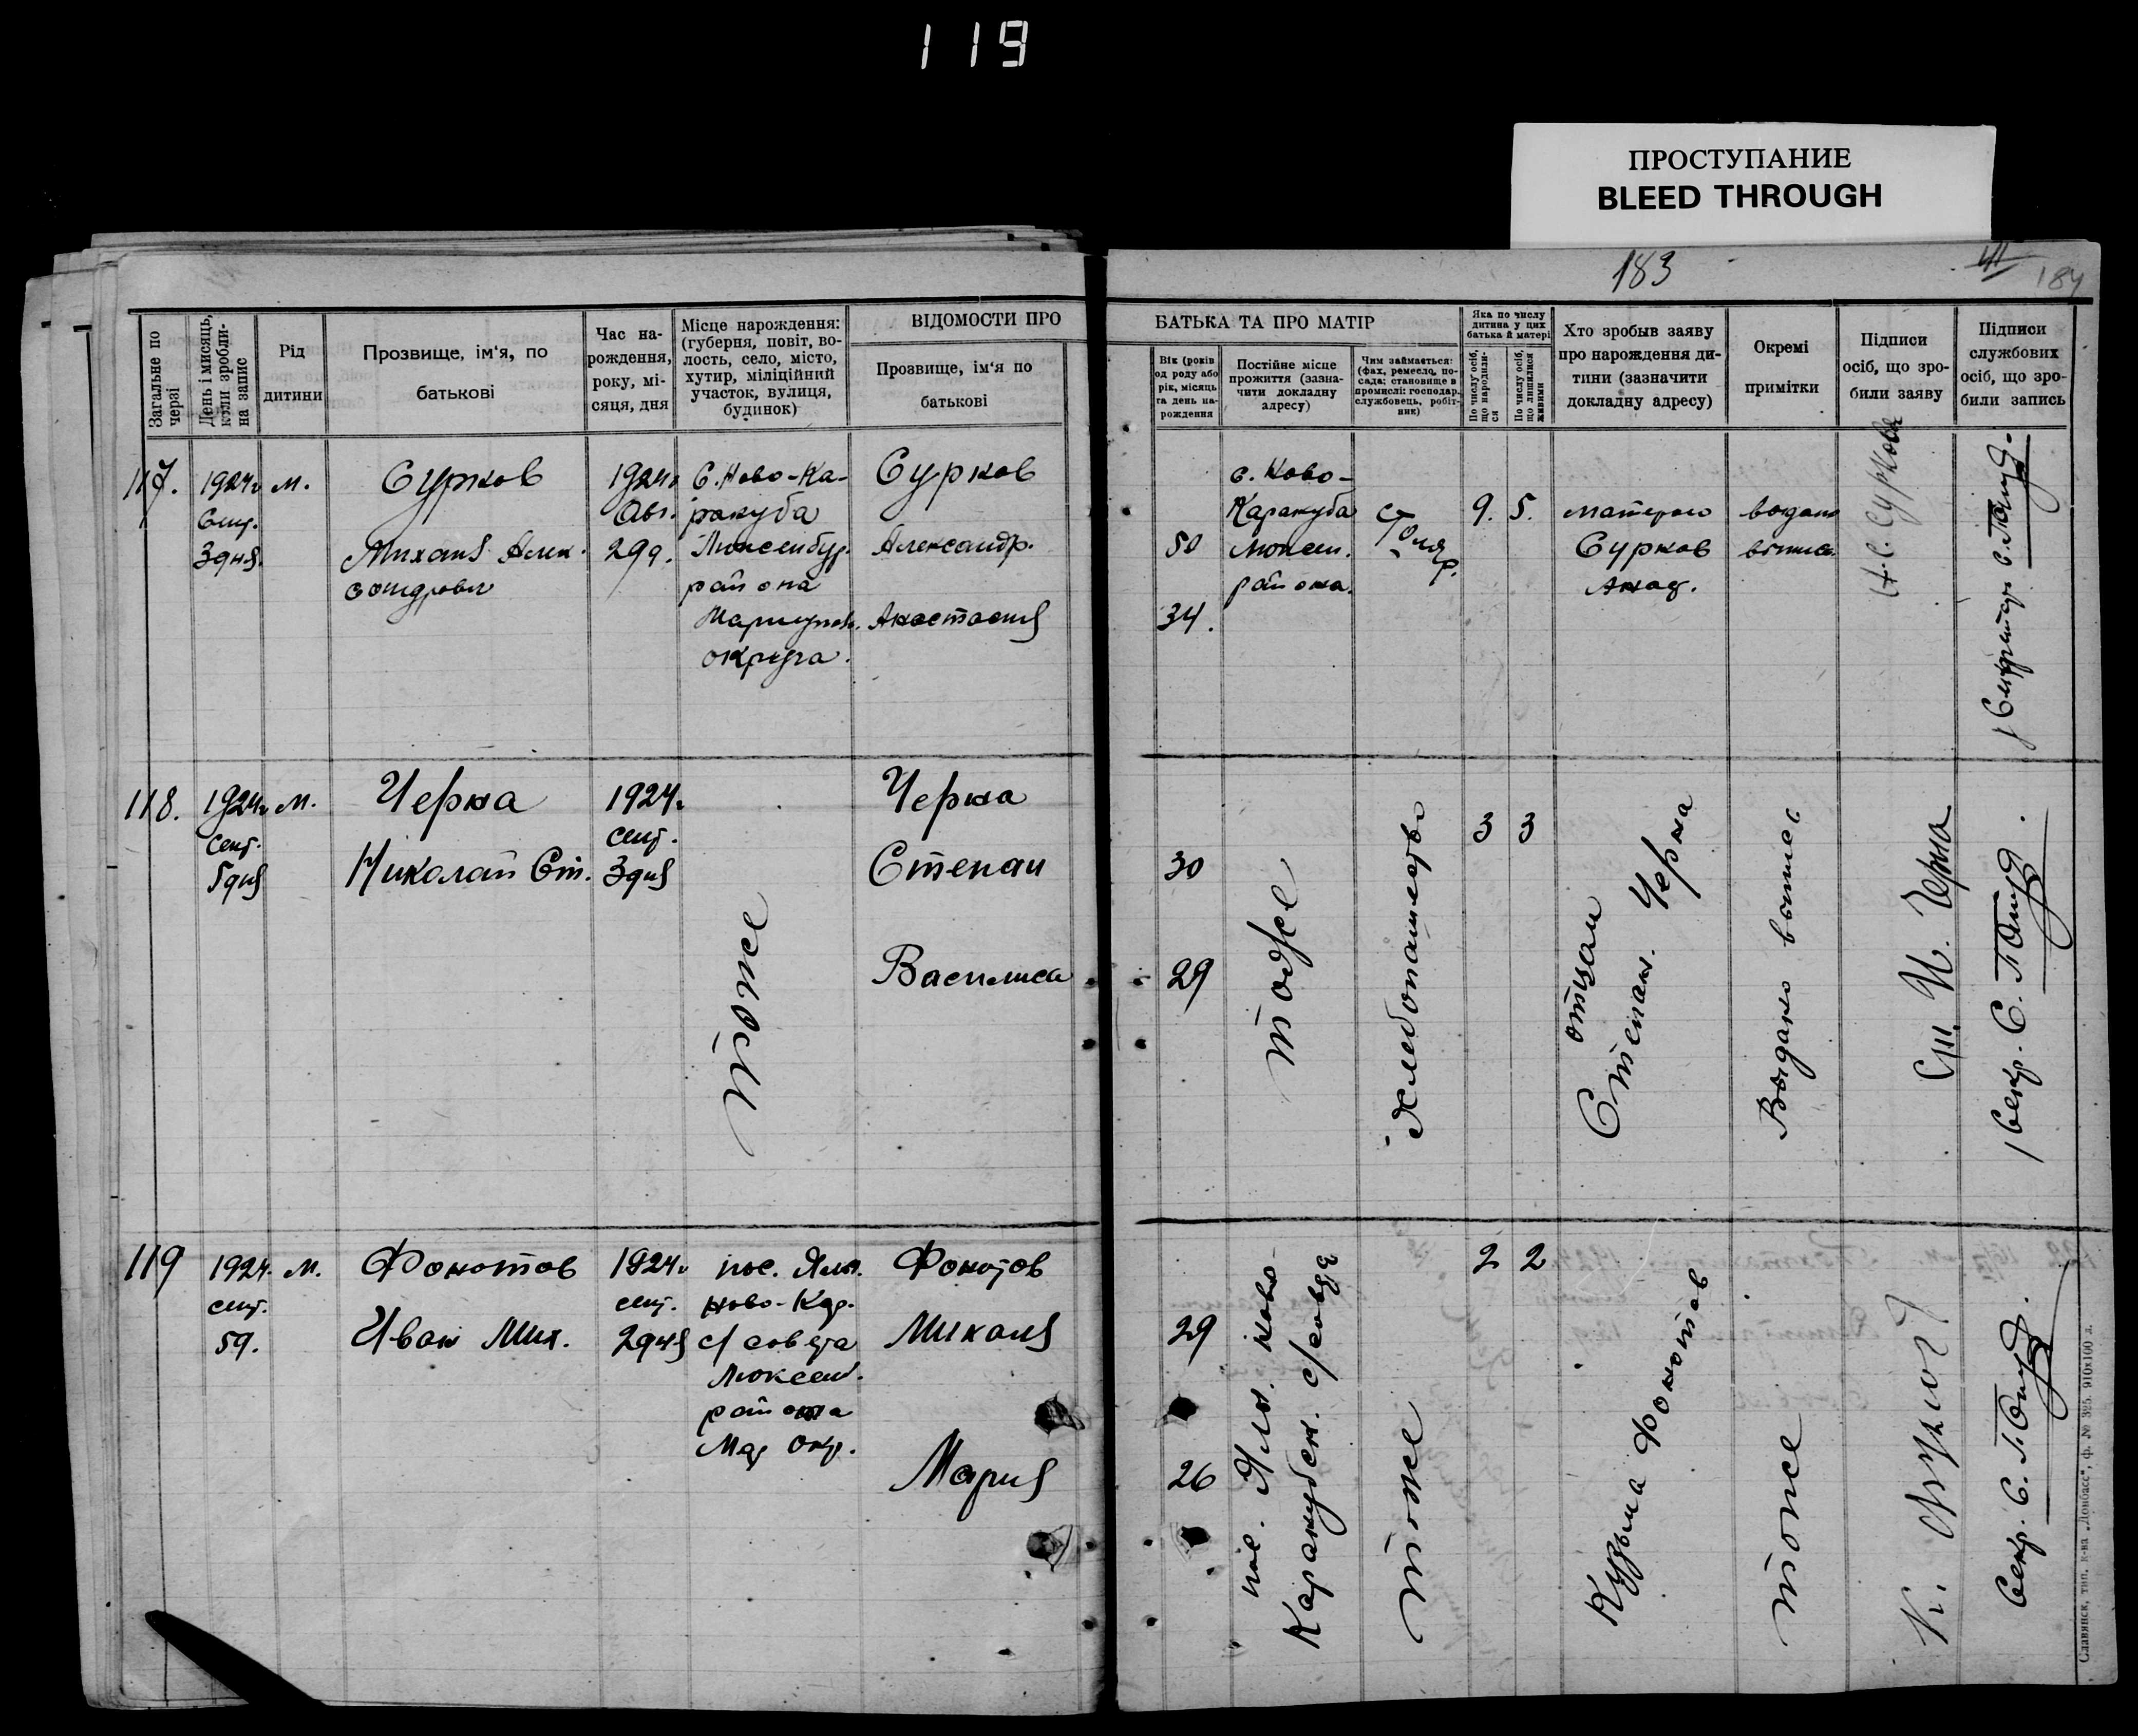 119
ПРОСТУПАНИЕ
BLEED THROUGH
183
184
Загальне по черзі
День і мисяць, коли зробли- на запис
Рід
дитини
Прозвище, ім'я, по
батькові
Час на-
рождення,
року, мі-
сяця, дня
Місце нарождення:
(губерня, повіт, во-
лость, село, місто,
хутир, міліційний
участок, вулиця,
будинок)
ВІДОМОСТИ ПРО
Прозвище, ім'я по
батькові
БАТЬКА ТА ПРО МАТІР
Вік (років
од роду або
рік, місяць
та день на-
рождення
Постійне місце
прожиття (зазна-
чити докладну
адресу)
Чим займається:
(фах, ремесло, по-
сада; становище в
промислі: господар,
службовець, робіт-
ник)
Яка по числу
дитина у цих
батька й матері
По числу осіб,
що народили-
ся
По числу осіб,
що лишилися
живими
Хто зробыв заяву
про нарождення ди-
тини (зазначити
докладну адресу)
Окремі
примітки
Підписи
осіб, що зро-
били заяву
Підписи
службових
осіб, що зро-
били запись
117.
1924г
Сент.
3дня.
м.
Сурков
Михаил Алек-
сандрови
1924г
Авг.
29д.
С. Ново-Ка-
ракуба
Люксембур.
района
Мариупол.
округа.
Сурков
Александр.
Анастасия
50
34.
с. Ново-
Каракуба
Люксем.
района.
столяр.
9.
5.
матерью
Сурков
Анас.
выдана
выпись
Н. С. Суркова
118.
1924г
сент.
5дня
м.
Черна
Николай Ст.
1924г
сент.
3дня
тоже
Черна
Степан
Василиса
30
29
тоже
хлебопашество
3
3
отцом
Степан. Черна
Выдано выпись
Черна
119
1924.
сент.
5д.
м.
Фонотов
Иван Мих.
1924г
сент.
2дня
пос. Ялы.
Ново-Кар.
с/совета
Люксем.
района
Мар Окр.
Фонотов
Михаил
Мария
29
26
пос. Ялы. Ново-
Каракубск. с/совета
тоже
2
2
Кузьма Фонотов
тоже
Славянск, тип. к-ва „Донбасс", ф. № 325. 910х100 а.